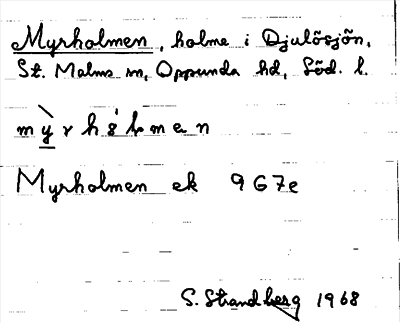 Myrholmen, holme i Djulösjön,
St. Malms sn, Oppunda hd, Söd. l.
Myrholmen ek 9G7e
S. Strandberg 1968